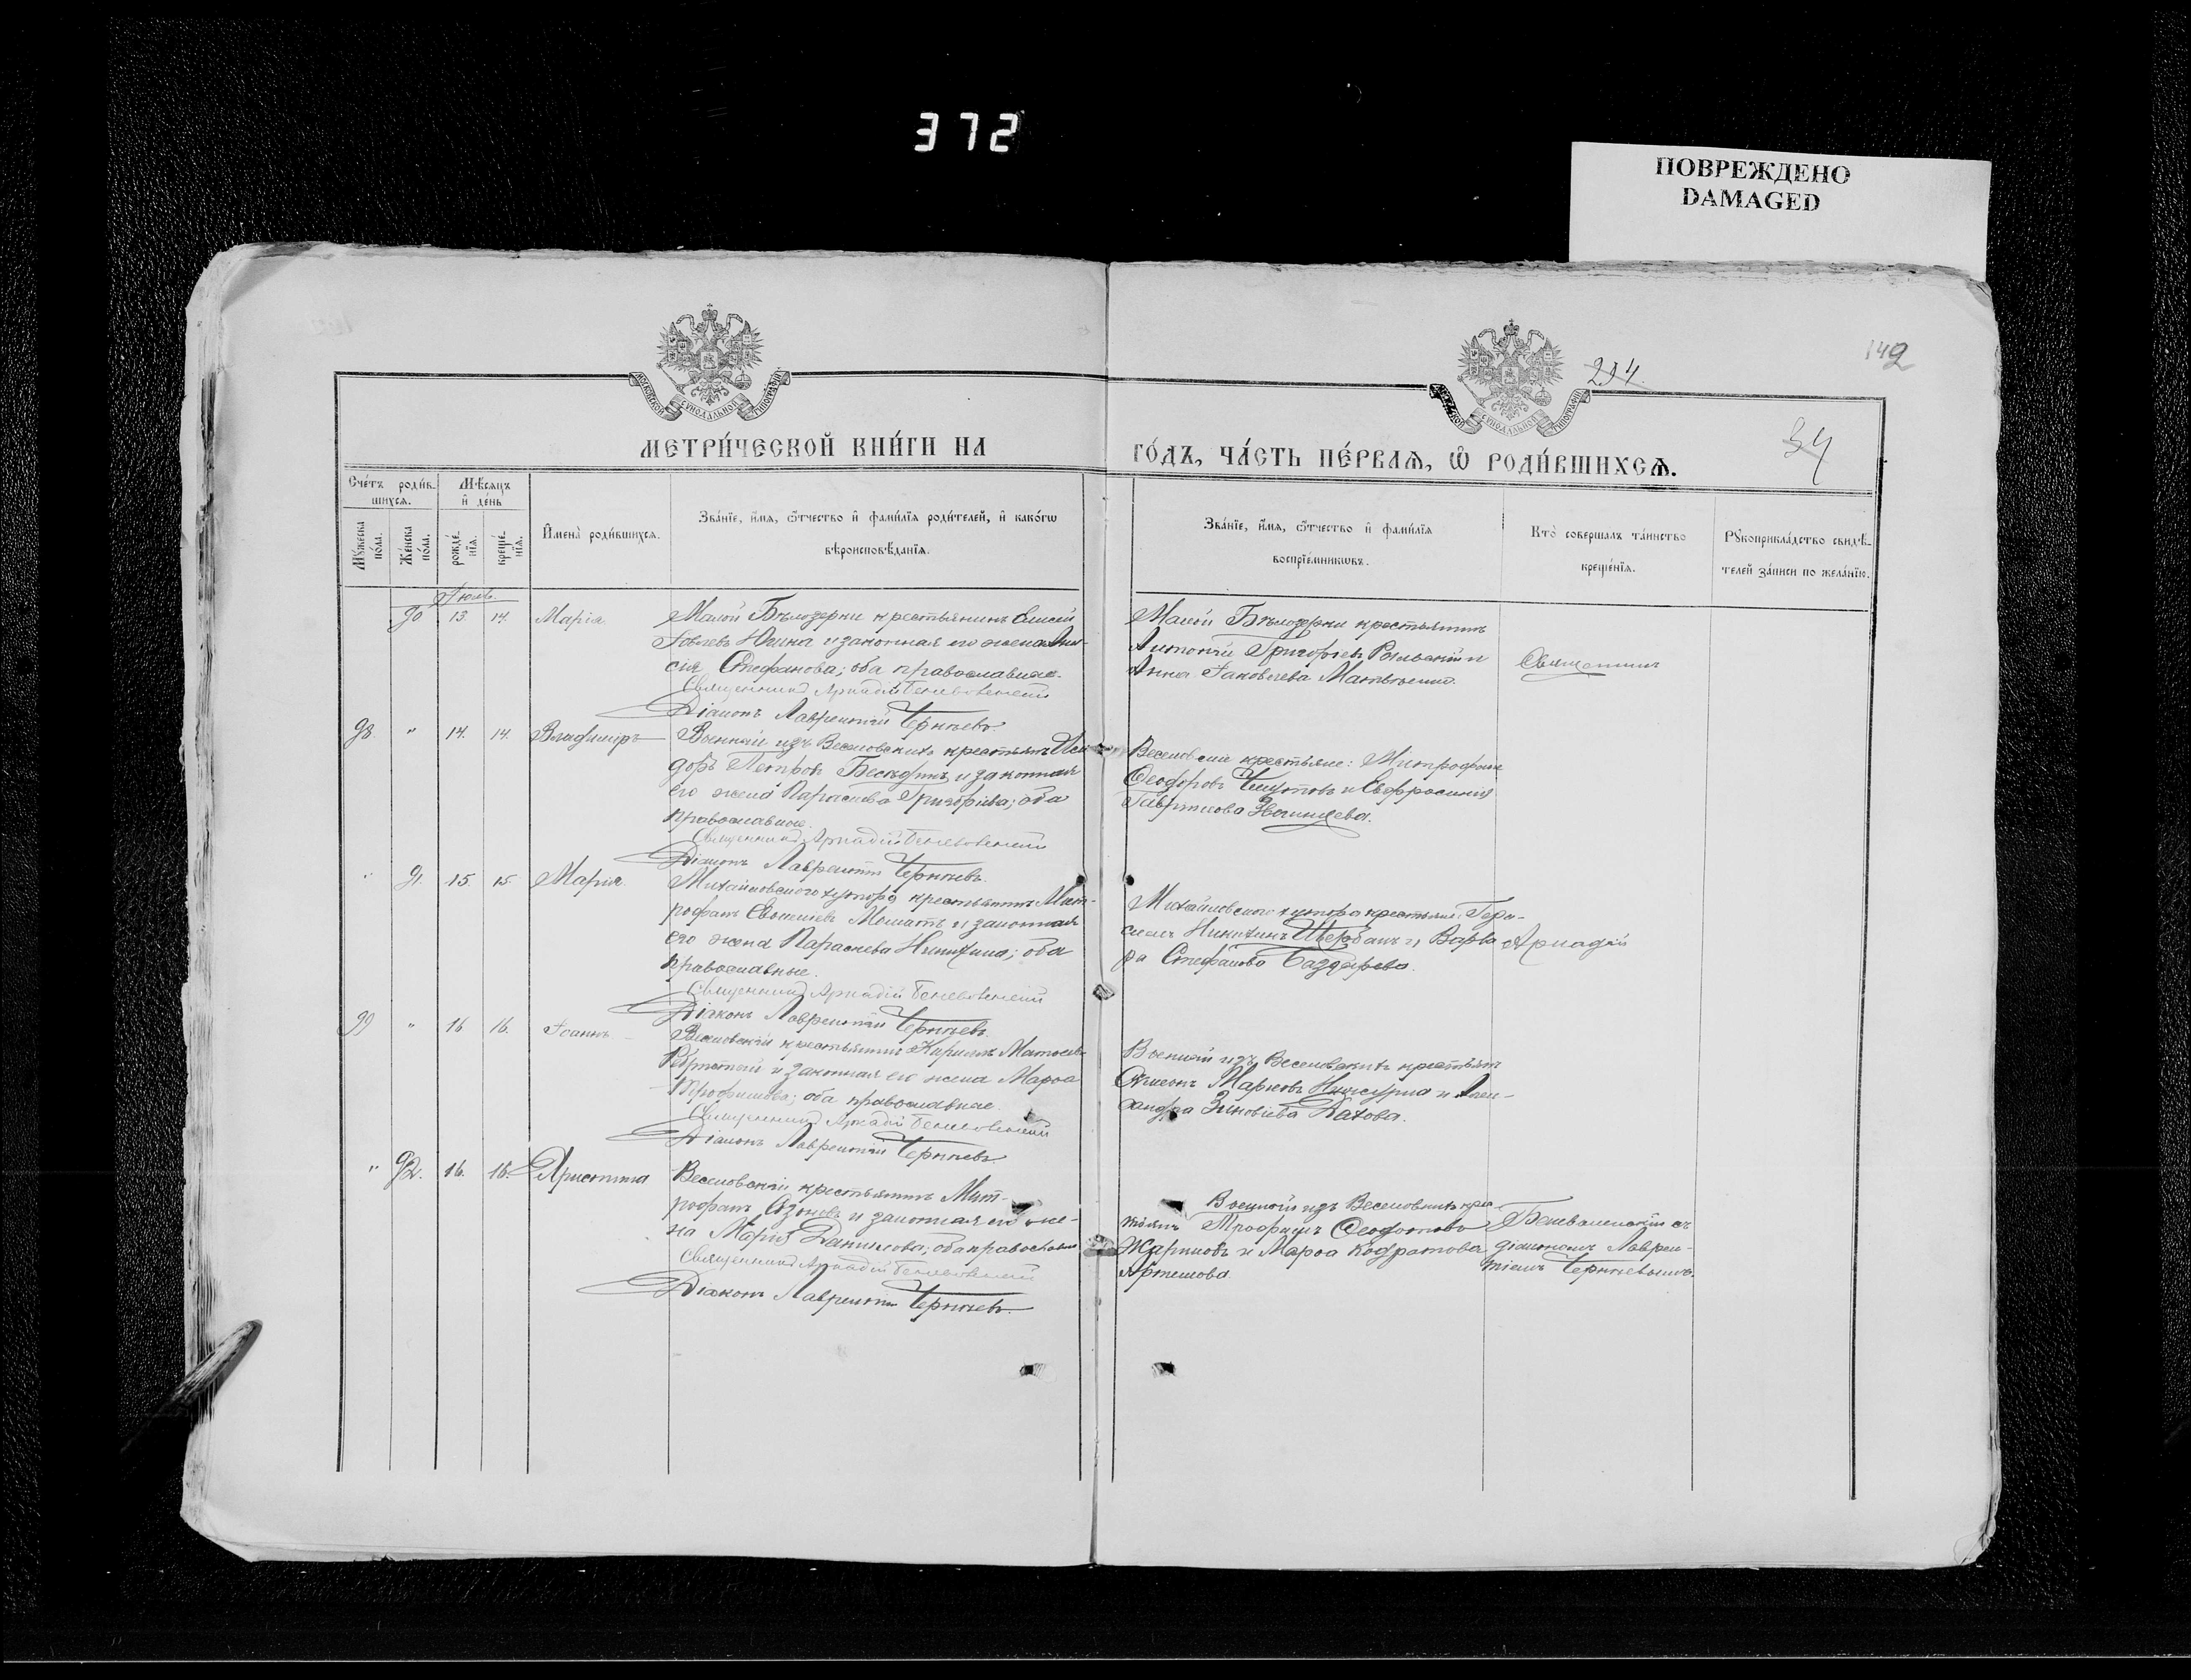 372
ПОВРЕЖДЕНО
DAMAGED
142
294.
34
МОСКОВСКОЙ СѴНОДАЛЬНОЙ ТИПОГРАФІИ
СѴНОДАЛЬНОЙ ТИПОГРАФІИ
МЕТРИ́ЧЕСКОЙ КНИ́ГИ НА
ГО́ДЪ, ЧА́СТЬ ПЕ́РВАѦ, Ѿ РОДИ́ВШИХСѦ.
Сче́тъ роди́в-
шихсѧ.
Мѣ́сяцъ
и҆ де́нь
Мꙋ́жеска
по́ла.
Же́нска
по́ла.
рожде́-
нїѧ.
креще́-
нїѧ.
И҆мена̀ роди́вшихсѧ.
Зва́нїе, и҆́мѧ, ѻ҆́тчество и҆ фами́лїѧ роди́телей, и҆ како́гѡ
вѣроисповѣ́данїѧ.
Зва́нїе, и҆́мѧ, ѻ҆́тчество и҆ фами́лїѧ
воспрїе́мникѡвъ.
Кто̀ соверша́лъ та́инство
креще́нїѧ.
Рꙋкоприкла́дство свидѣ́-
телей за́писи по жела́нїю.
Іюль.
90 13. 14. Марія
Малой Бѣлозерки крестьянинъ Елисей
Іовлевъ Юхна и законная его жена Ани-
сія Стефанова; оба православные.
Священникъ Аркадій Беневоленскій
Діаконъ Лаврентій Чернѣевъ.
Малой Бѣлозерки крестьянинъ
Антоній Григорьевъ и
Анна Іаковлева
Священникъ
98. " 14. 14. Владиміръ
Военный изъ Веселовскихъ крестьянъ Иси-
доръ Петровъ и законная
его жена Параскева Григорьева; оба
православные.
Священникъ Аркадій Беневоленскій
Діаконъ Лаврентій Чернѣевъ.
Веселовскіе крестьяне: Митрофанъ
Ѳеодоровъ и Евфросинія
Гавриилова Звягинцева.
" 91. 15. 15. Марія
Михайловского хутора крестьянинъ Мит-
рофанъ и законная
его жена Параскева Никитина; оба
православные.
Священникъ Аркадій Беневоленскій
Діаконъ Лаврентій Чернѣевъ.
Михайловского хутора крестьяне: Гера-
симъ Никитинъ и Варва-
ра Стефанова
Аркадій
99 " 16 16. Іоаннъ
Веселовскій крестьянинъ Кириллъ
и законная его жена Марѳа
Трофимова; оба православные.
Священникъ Аркадій Беневоленскій
Діаконъ Лаврентій Чернѣевъ.
Военный изъ Веселовскихъ крестьянъ
Симеонъ Марковъ и Алек-
сандра Зиновіева
" 92. 16. 16. Христина
Веселовскій крестьянинъ Мит-
рофанъ и законная его же-
на Марія Данилова; оба православные
Священникъ Аркадій Беневоленскій
Діаконъ Лаврентій Чернѣевъ.
Военный изъ Веселовскихъ крес-
тьянъ Трофимъ
Жариковъ и Марѳа Кодратова
Артемова
Беневоленскій съ
діакономъ Лаврен-
тіемъ Чернѣевымъ.